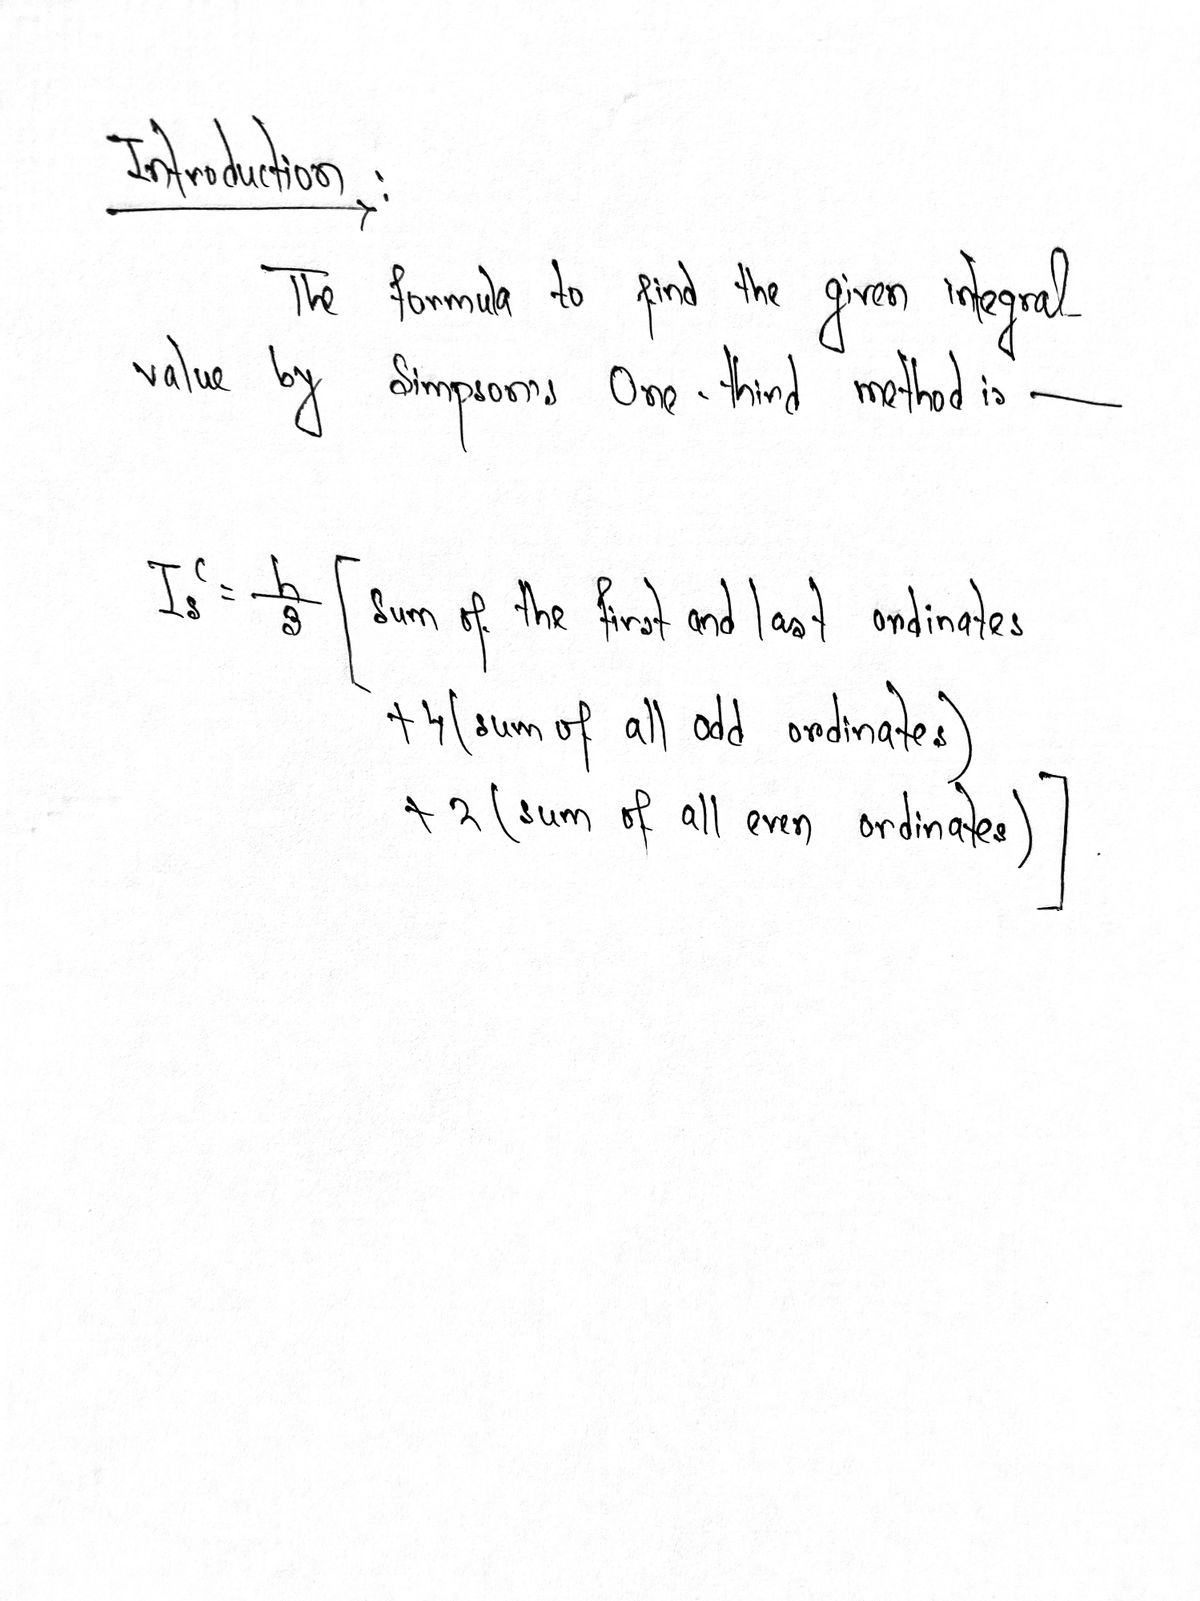 Introduction:
The formula to find the given integral
value by Simpson's One-third method is —
I_s^c = h/3 [sum of the first and last ordinates
+4(sum of all odd ordinates)
+2(sum of all even ordinates)].